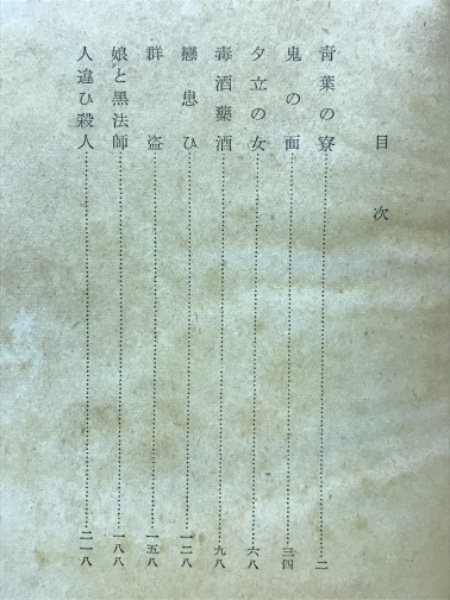 目次
青葉の寮……二
鬼の面……三四
夕立の女……六八
毒酒藥酒……九八
戀患ひ……一二八
群盗……一五八
娘と黑法師……一八八
人違ひ殺人……二一八